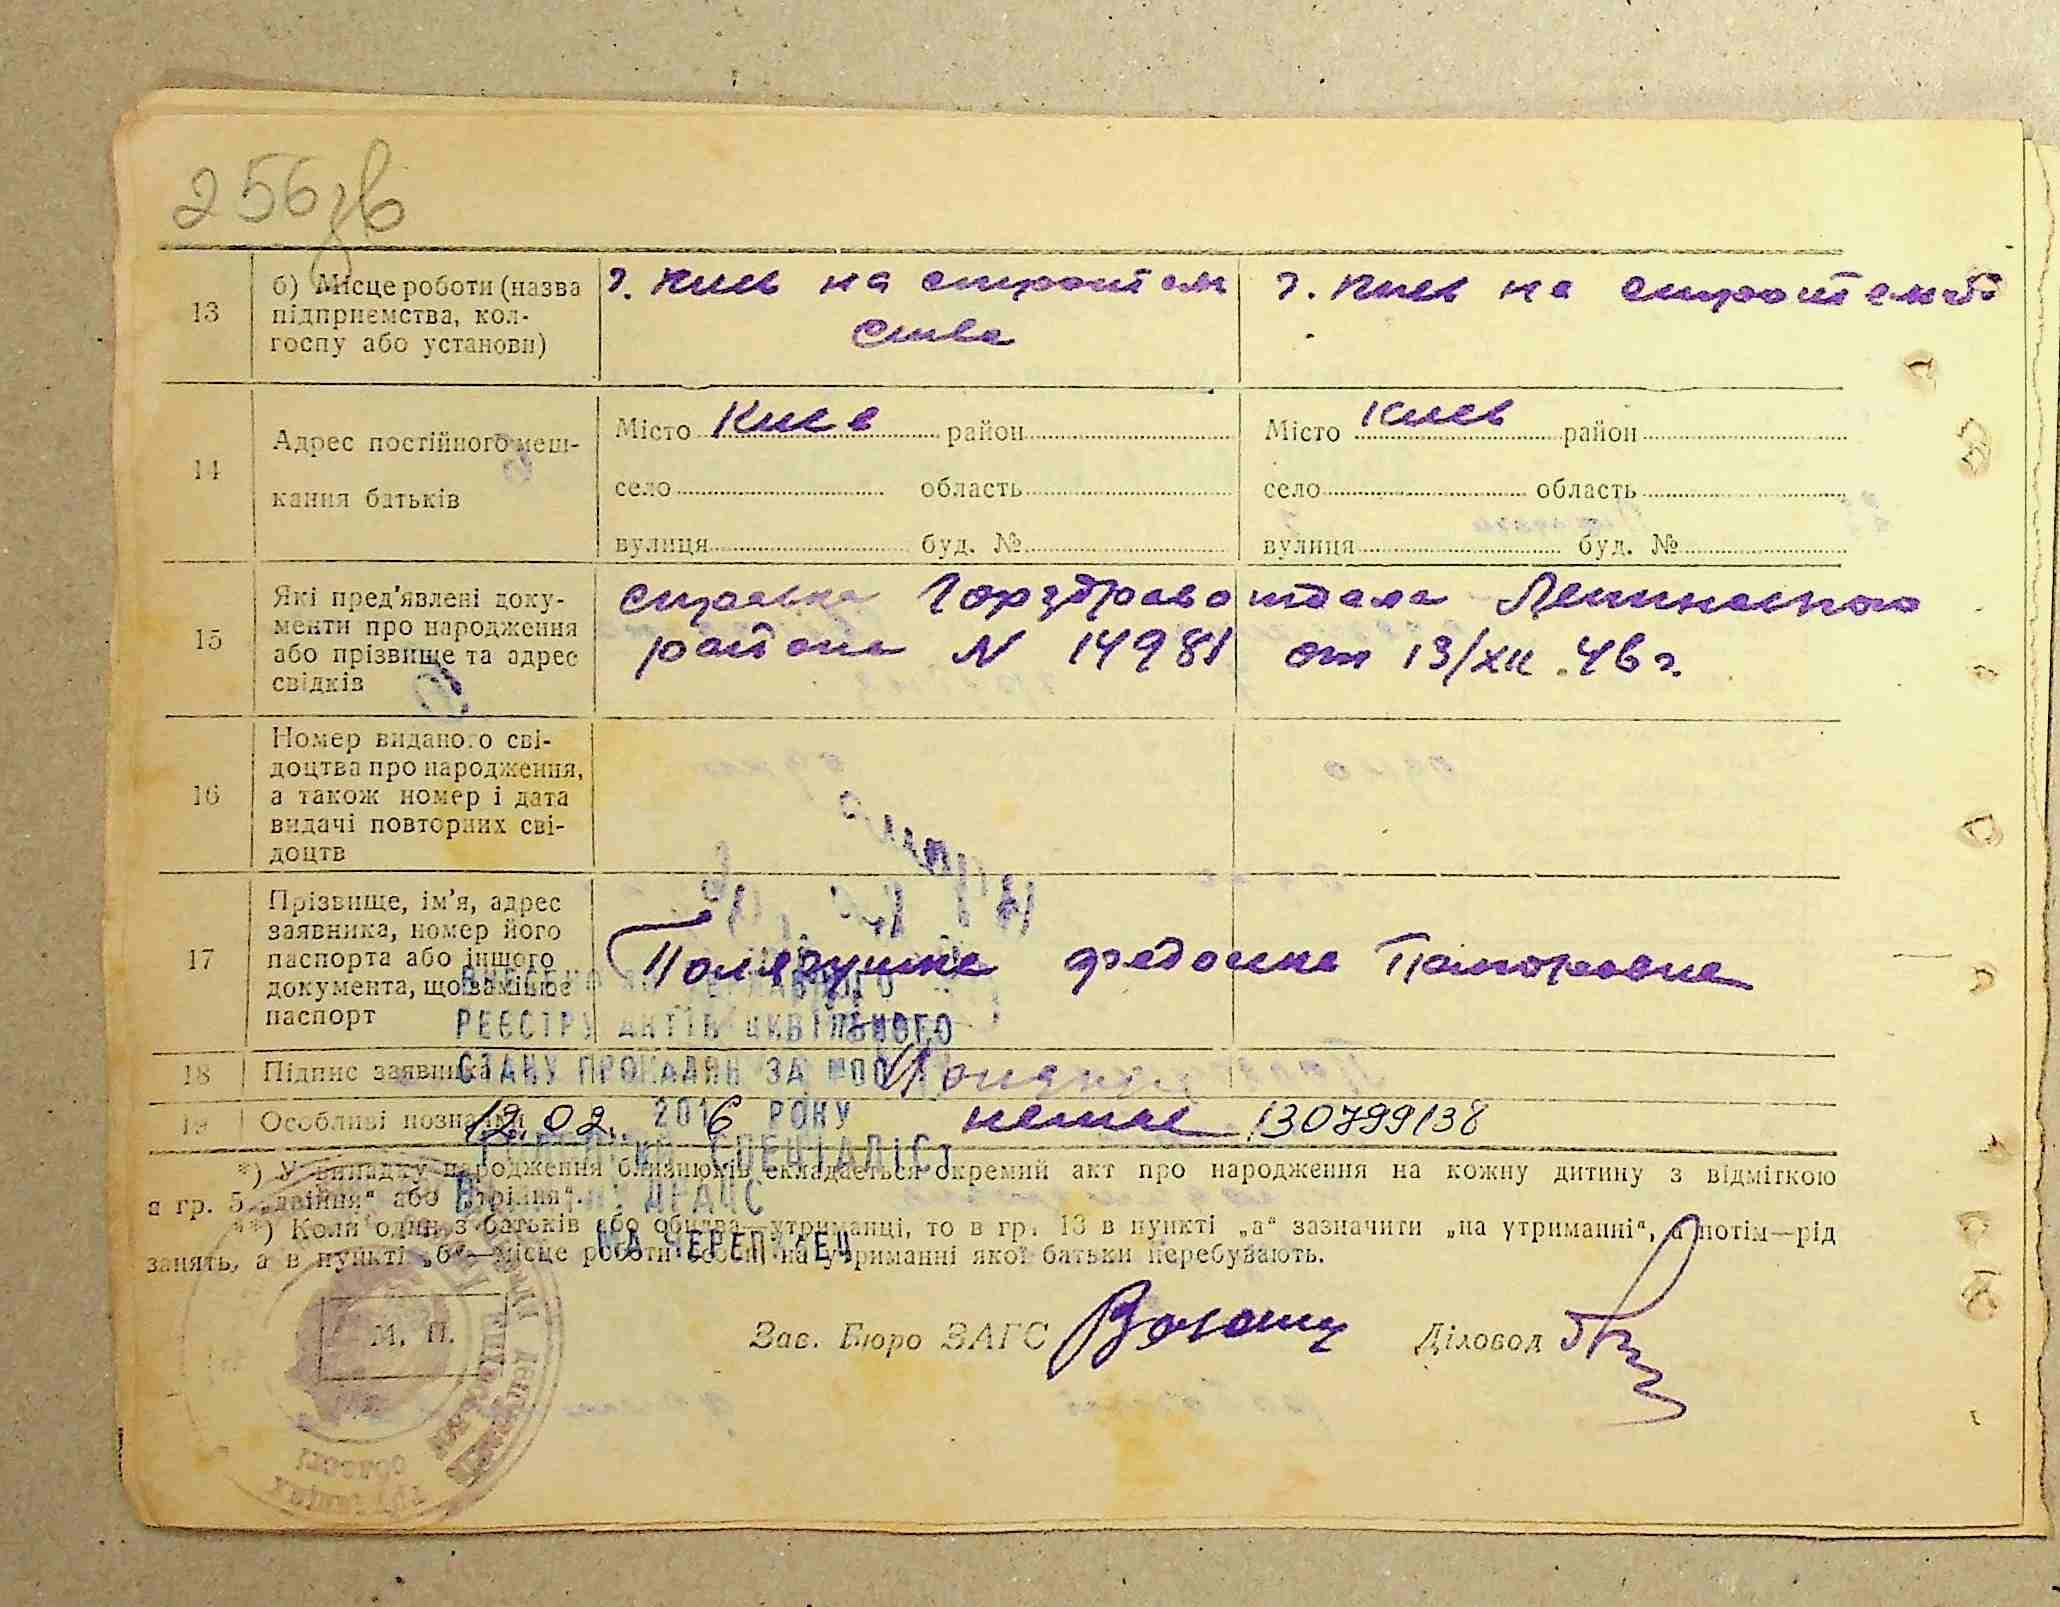 256зв
13
б) Місце роботи (назва
підприємства, кол-
госпу або установи)
г. Киев на строитель
ства
г. Киев на
14
Адрес постійного меш-
кання батьків
Місто Киев район
село область
вулиця буд. №
Місто Киев район
село область
вулиця буд. №
15
Які пред'явлені доку-
менти про народження
або прізвище та адрес
свідків
справка Горздравотдела Ленинского
района N 14981 от 13/XII.46 г.
16
Номер виданого сві-
доцтва про народження,
а також номер і дата
видачі повторних сві-
доцтв
17
Прізвище, ім'я, адрес
заявника, номер його
паспорта або іншого
документа, що заміняє
паспорт
Полядушка Федосия
18
Підпис заявника
19
Особливі познайки
немає 130799138
РЕЄСТРУ АКТІВ ЦИВІЛЬНОГО
СТАНУ ГРОМАДЯН ЗА №00
12.02. 2016 РОКУ
ГОЛОВНИЙ СПЕЦІАЛІСТ
ДРАЦС
МА ЧЕРЕПУЩЕЧ
*) У випадку народження близнюків складається окремий акт про народження на кожну дитину з відміткою
в гр. 5 „двійня“ або „трійня“.
**) Коли один з батьків або обидва—утриманці, то в гр. 13 в пункті „а“ зазначити „на утриманні“, а потім—рід
занять, а в пункті „б“—місце роботи особи на утриманні якої батьки перебувають.
М. П.
Зав. Бюро ЗАГС
Діловод